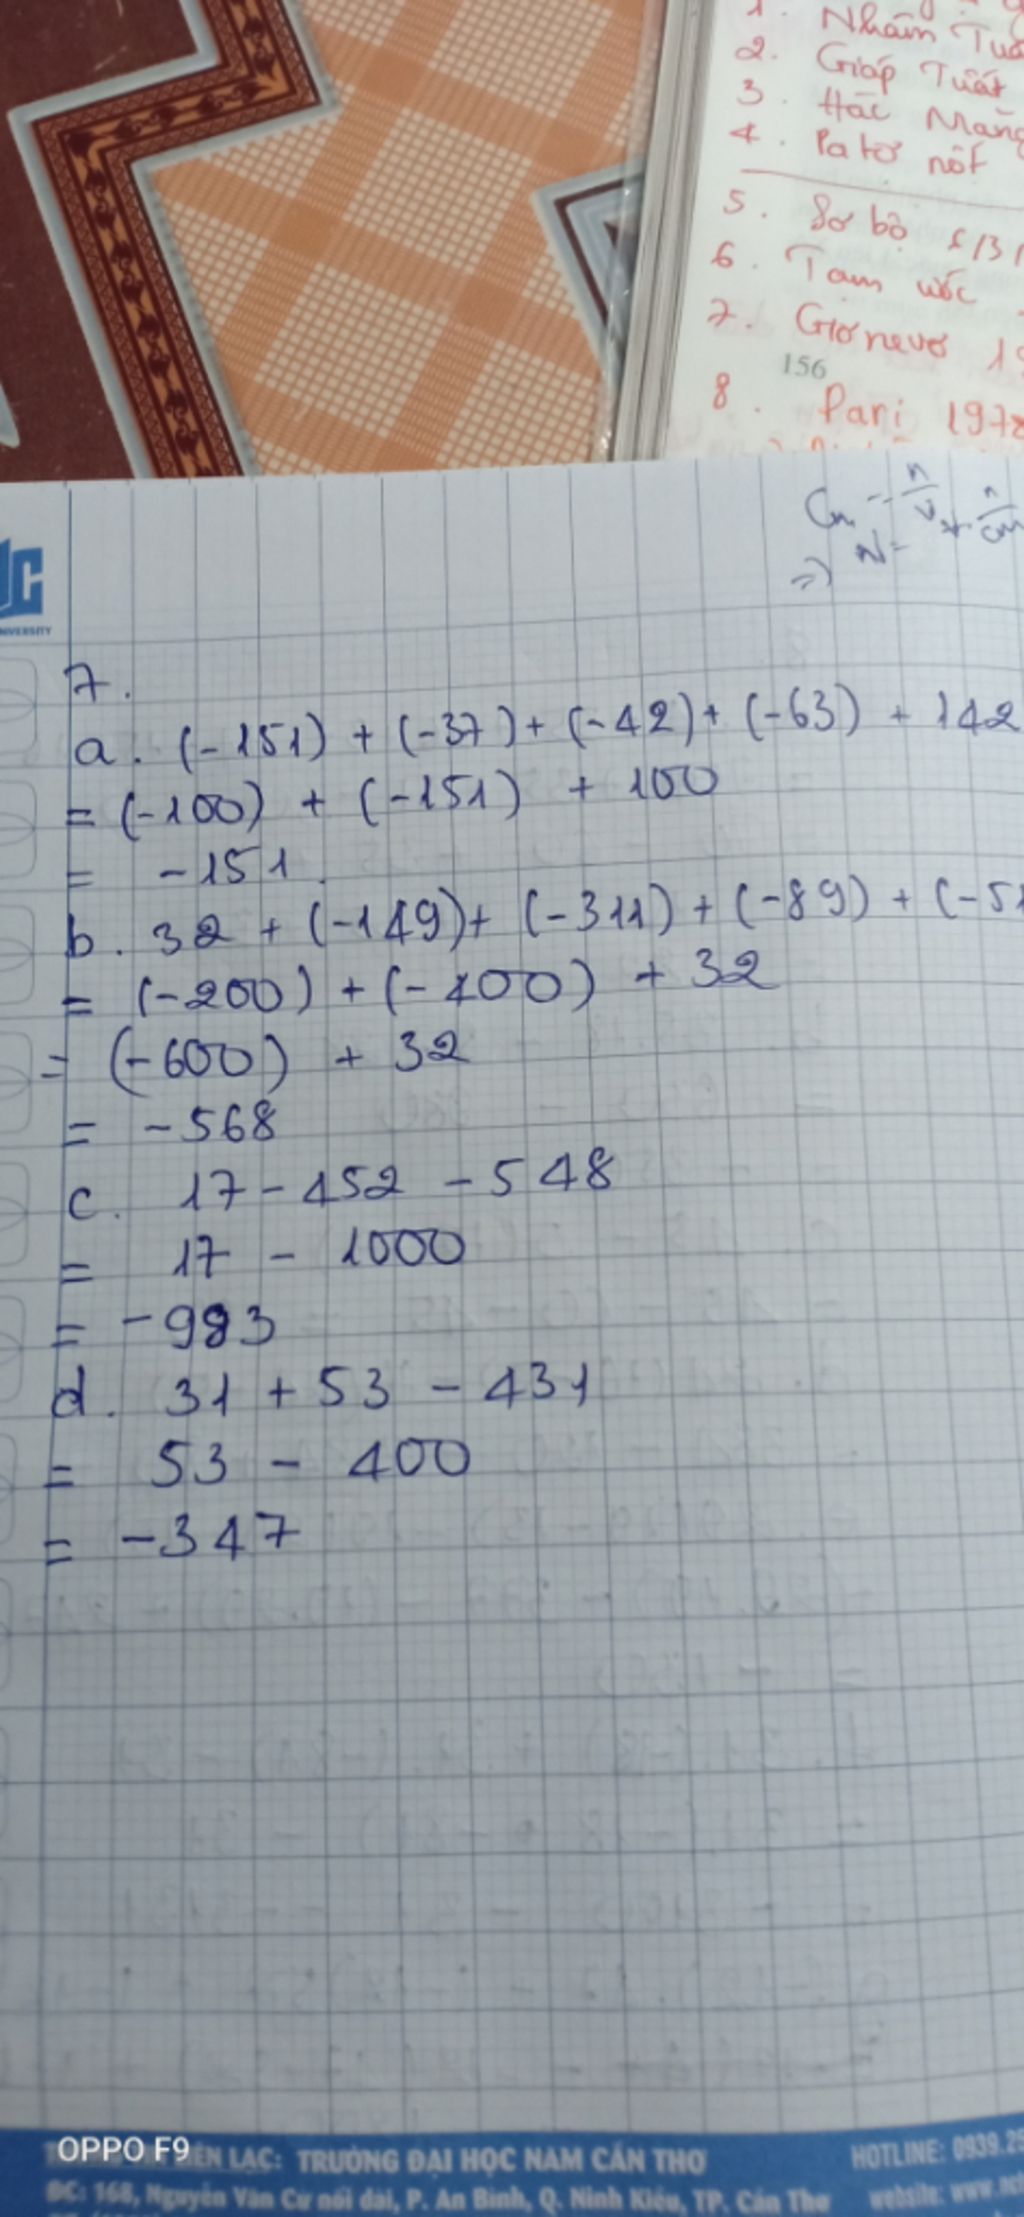 1. Nhâm Tuất
2. Giáp Tuất
3. Hác Măng
4. Patơ nốt
5. Sơ bộ 6/3/
6. Tạm ước
7. Giơnevơ 19
156
8. Pari 1973
UNIVERSITY
7.
a. (-151) + (-37) + (-42) + (-63) + 142
= (-100) + (-151) + 100
= -151.
b. 32 + (-149) + (-311) + (-89) + (-51
= (-200) + (-400) + 32
= (-600) + 32
= -568
c. 17 - 452 - 548
= 17 - 1000
= -983
d. 31 + 53 - 431
= 53 - 400
= -347
OPPO F9
LẠC: TRƯỜNG ĐẠI HỌC NAM CẦN THƠ
HOTLINE: 0939.25
ĐC: 168, Nguyễn Văn Cừ nối dài, P. An Bình, Q. Ninh Kiều, TP. Cần Thơ
website: www.